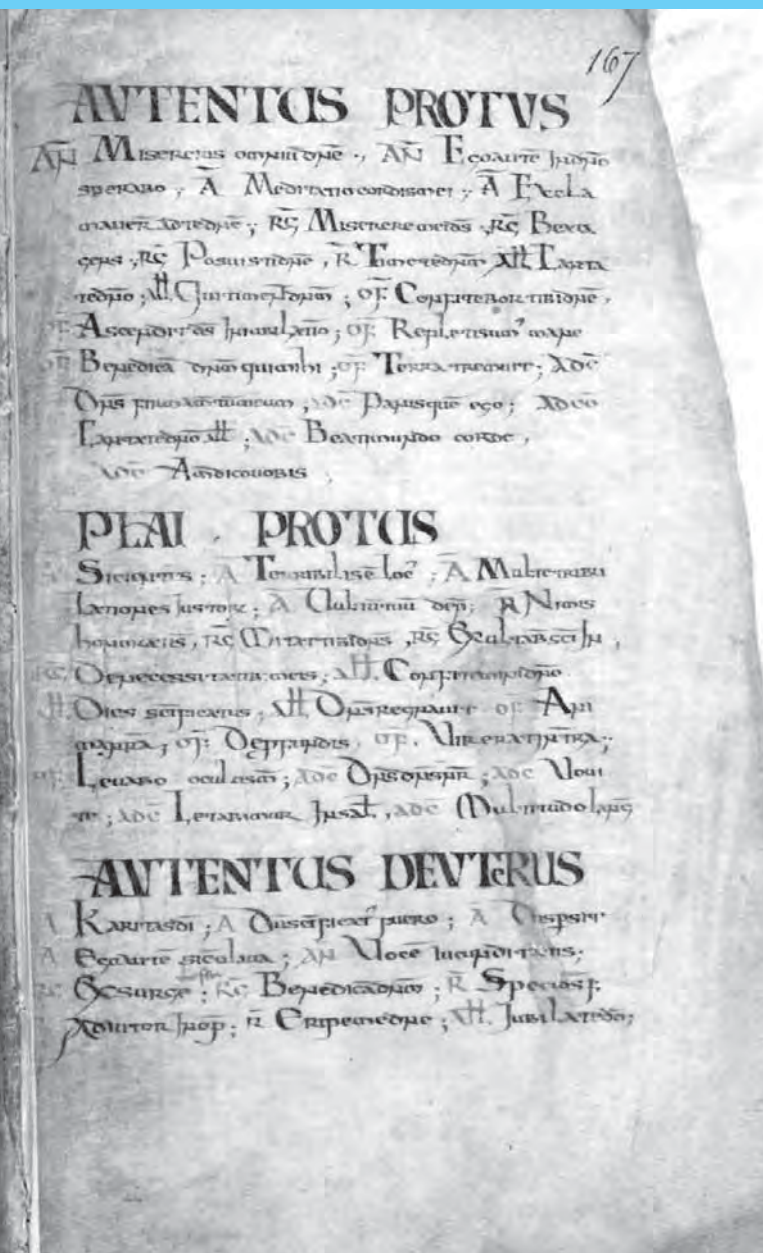 167
AVTENTUS PROTVS
AN Misereris omniū dn̄e ., AN Ego autē In dn̄o
sperabo ; A Meditatio cordis mei ; A Excla
mauer̄ ad te dn̄e ; RG Miserere mei d̄s ; RG Beata
gens ; RG Posuisti dn̄e , R Timete dn̄m All Canta
te dn̄o ; All Qui timent dn̄m ; OF Confitebor tibi dn̄e ,
OF Ascendit d̄s In iubilatio ; OF Repleti sum' mane
OF Benedicā dn̄m qui mihi ; OF Terra tremuit ; ADC
Dn̄s firmamentum ; ADC Panis quē ego ; AD CO
Cantate dn̄o all ; ADC Beati mundo corde ,
ADC Amen dico uobis
PLAI . PROTUS
Sicientes ; A Terribilis ē loc' ; A Multe tribu
lationes Iustor ; A Cui ; R Nimis
honorati s̄ , RG Ostende nobis dn̄e , RG Exultab sc̄i In ,
RG De necessitatib meis ; All . Confitemini dn̄o
All . Dies sc̄ificatus ; All . Dn̄s regnauit OF Ani
; OF : De p̄fundis , OF . Vir erat In t̄ra ;
OF Leuabo oculos m̄ ; ADC Dn̄s dn̄s nr̄ ; ADC Uoui
te ; ADC Letabimur In sal̄ , ADC Multitudo lang̅
AVTENTUS DEVTERUS
A Karitas d̄i ; A Dum sc̄ificat' fuero ; A Dispersit
A Ego autē sic oliua ; AN Uocē iucunditatis ;
RG Exsurge ; RG Benedicā dn̄m ; R Specios' f ;
Adiutor In op̄ ; R Eripe me dn̄e ; All . Iubilate dō ;